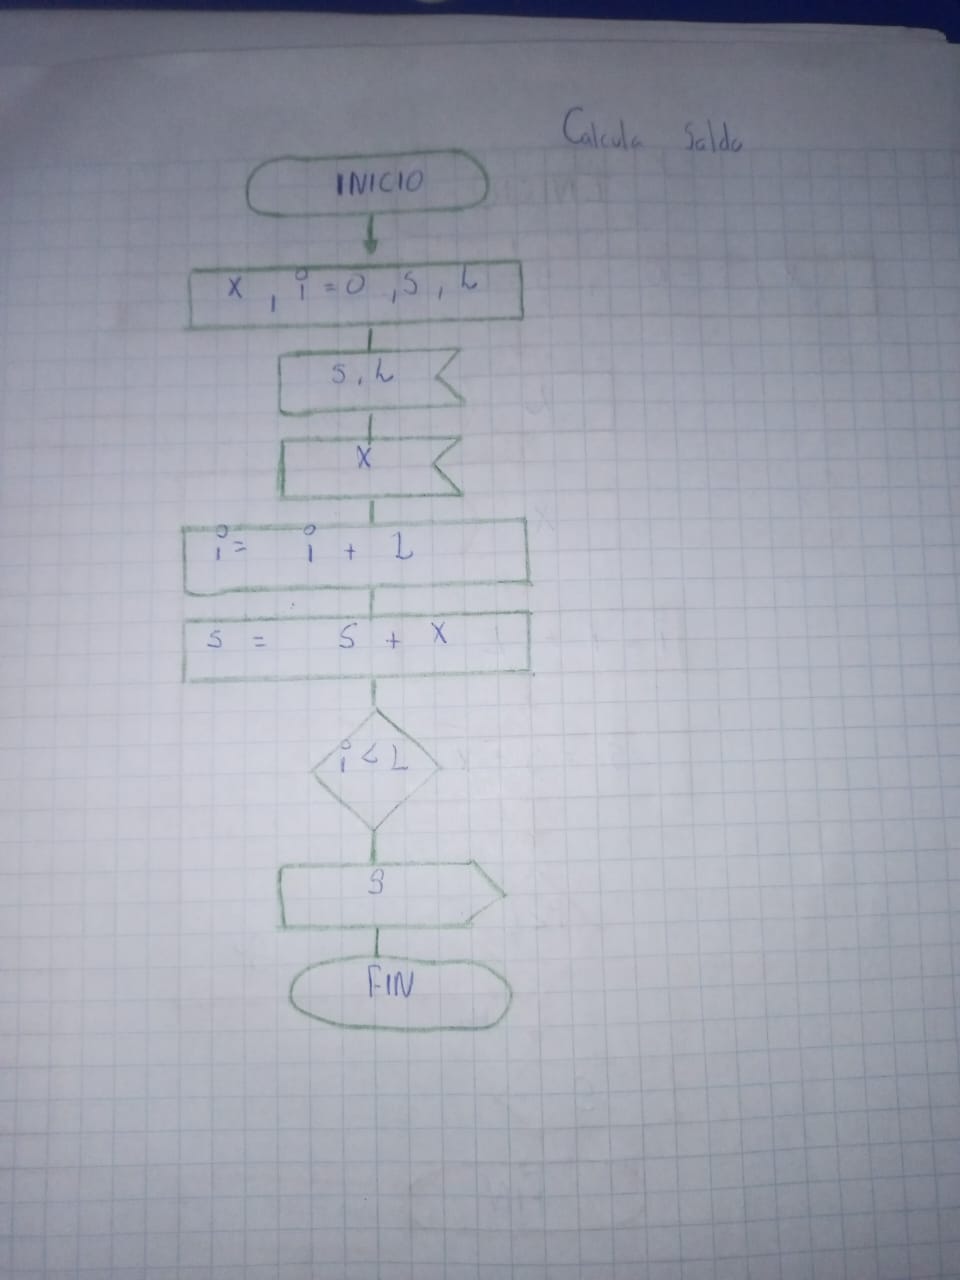 Calcula Saldo
INICIO
x , i = 0 , S , L
S , L
X
i = i + 1
S = S + X
i < L
S
FIN